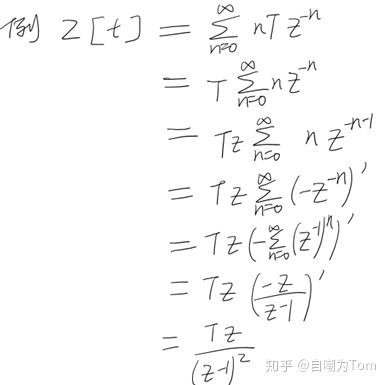 例 Z[t] = ∑_{n=0}^{∞} nTz^{-n}
= T∑_{n=0}^{∞} nz^{-n}
= Tz∑_{n=0}^{∞} nz^{-n-1}
= Tz∑_{n=0}^{∞} (-z^{-n})′
= Tz(-∑_{n=0}^{∞}(z^{-1})^{n})′
= Tz(\frac{-z}{z-1})′
= \frac{Tz}{(z-1)^2}
知乎 @自嘲为Tom